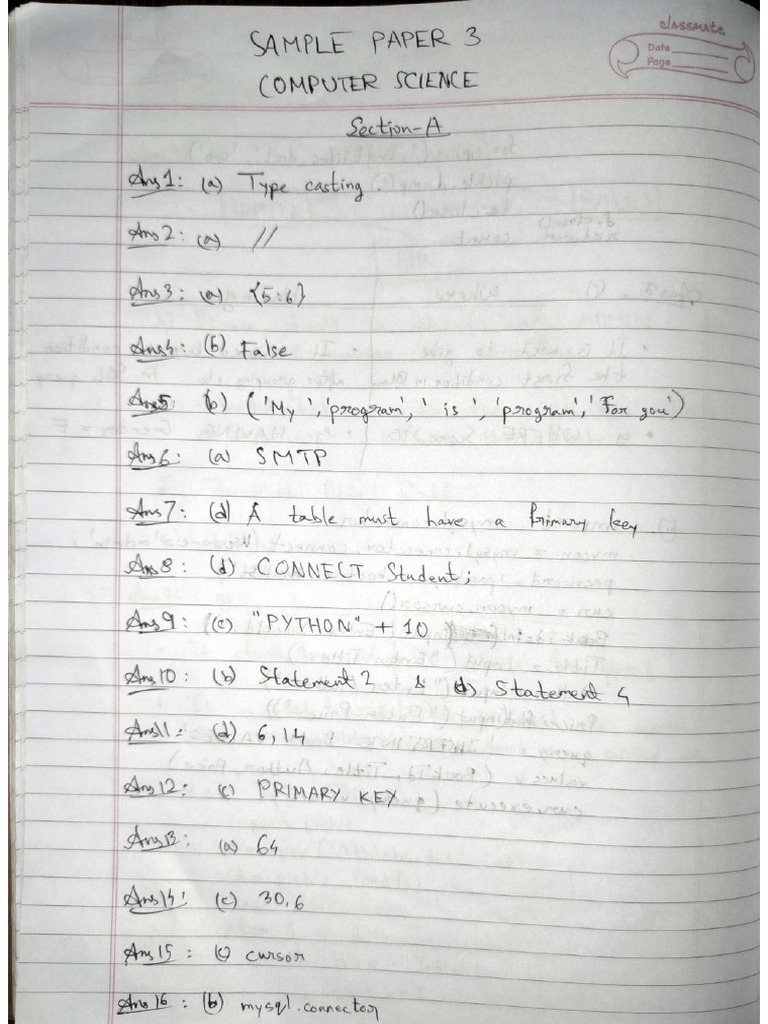 classmate
Date
Page
SAMPLE PAPER 3
COMPUTER SCIENCE
Section-A
Ans1: (a) Type casting.
Ans2: (a) //
Ans3: (a) {5:6}
Ans4: (b) False
Ans5: (b) ('My ','program',' is ','program','For you')
Ans6: (a) SMTP
Ans7: (d) A table must have a Primary key
Ans8: (d) CONNECT Student;
Ans9: (c) "PYTHON" + 10
Ans10: (b) Statement 2 & (d) Statement 4
Ans11: (d) 6, 14
Ans12: (c) PRIMARY KEY
Ans13: (a) 64
Ans14: (c) 30,6
Ans15: (c) cursor
Ans16: (b) mysql.connector